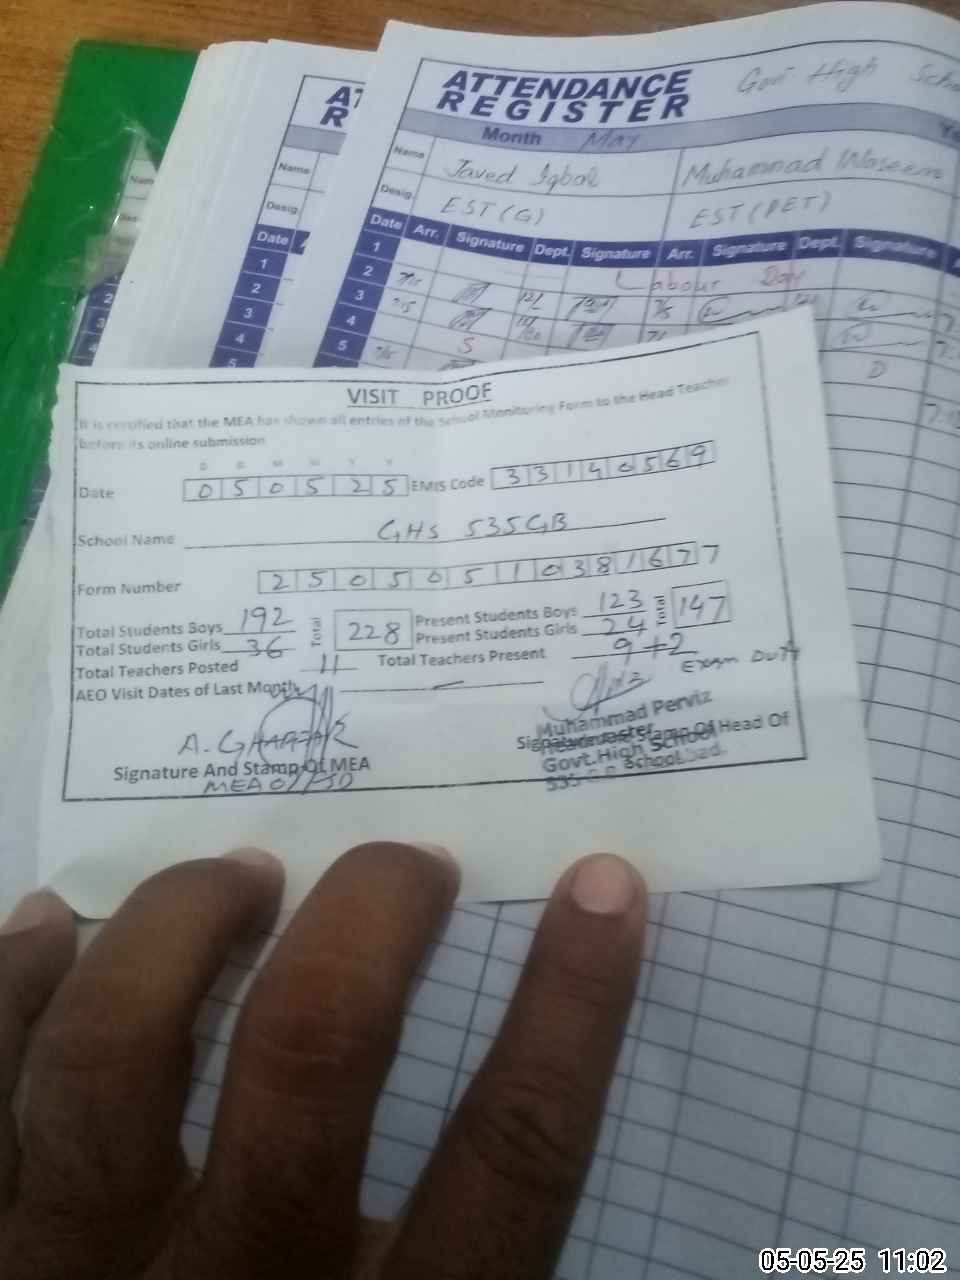 ATTENDANCE
REGISTER
Govt High
Month May
Name Javed Iqbal Muhammad Waseem
Desig. EST(G) EST(PET)
Date Arr. Signature Dept. Signature Arr. Signature Dept. Signature
1 Labour Day
2
3
4 S
5 D
AT
R
Name
Desig.
Date
1
2
3
4
5
VISIT PROOF
It is certified that the MEA has shown all entries of the School Monitoring Form to the Head Teacher
before its online submission
D D M M Y Y
Date 050525 EMIS Code 33140569
School Name GHS 535GB
Form Number 25050510381677
Total Students Boys 192 Total 228 Present Students Boys 123 Total 147
Total Students Girls 36 Present Students Girls 24
Total Teachers Posted 11 Total Teachers Present 9+2
Exam Duty
AEO Visit Dates of Last Month —
A. GHAFFAR
Signature And Stamp Of MEA
Muhammad Perviz
Headmaster
Signature And Stamp Of Head Of
Govt. High School
School
05-05-25 11:02